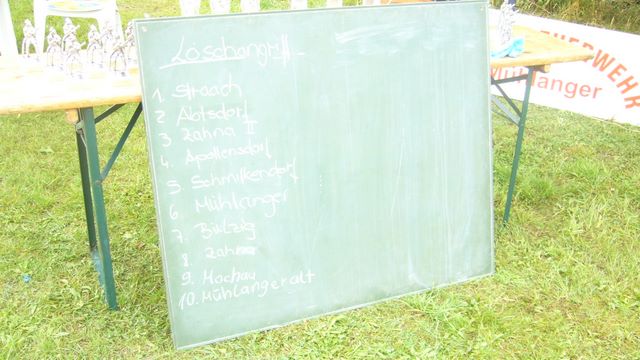 Löschangriff
1. Straach
2 Abtsdorf
3 Zahna II
4. Apollensdorf
5 Schmilkendorf
6 Mühlanger
7. Bülzig
8. Zahna
9. Mochau
10. Mühlanger alt
FEUERWEHR
Mühlanger